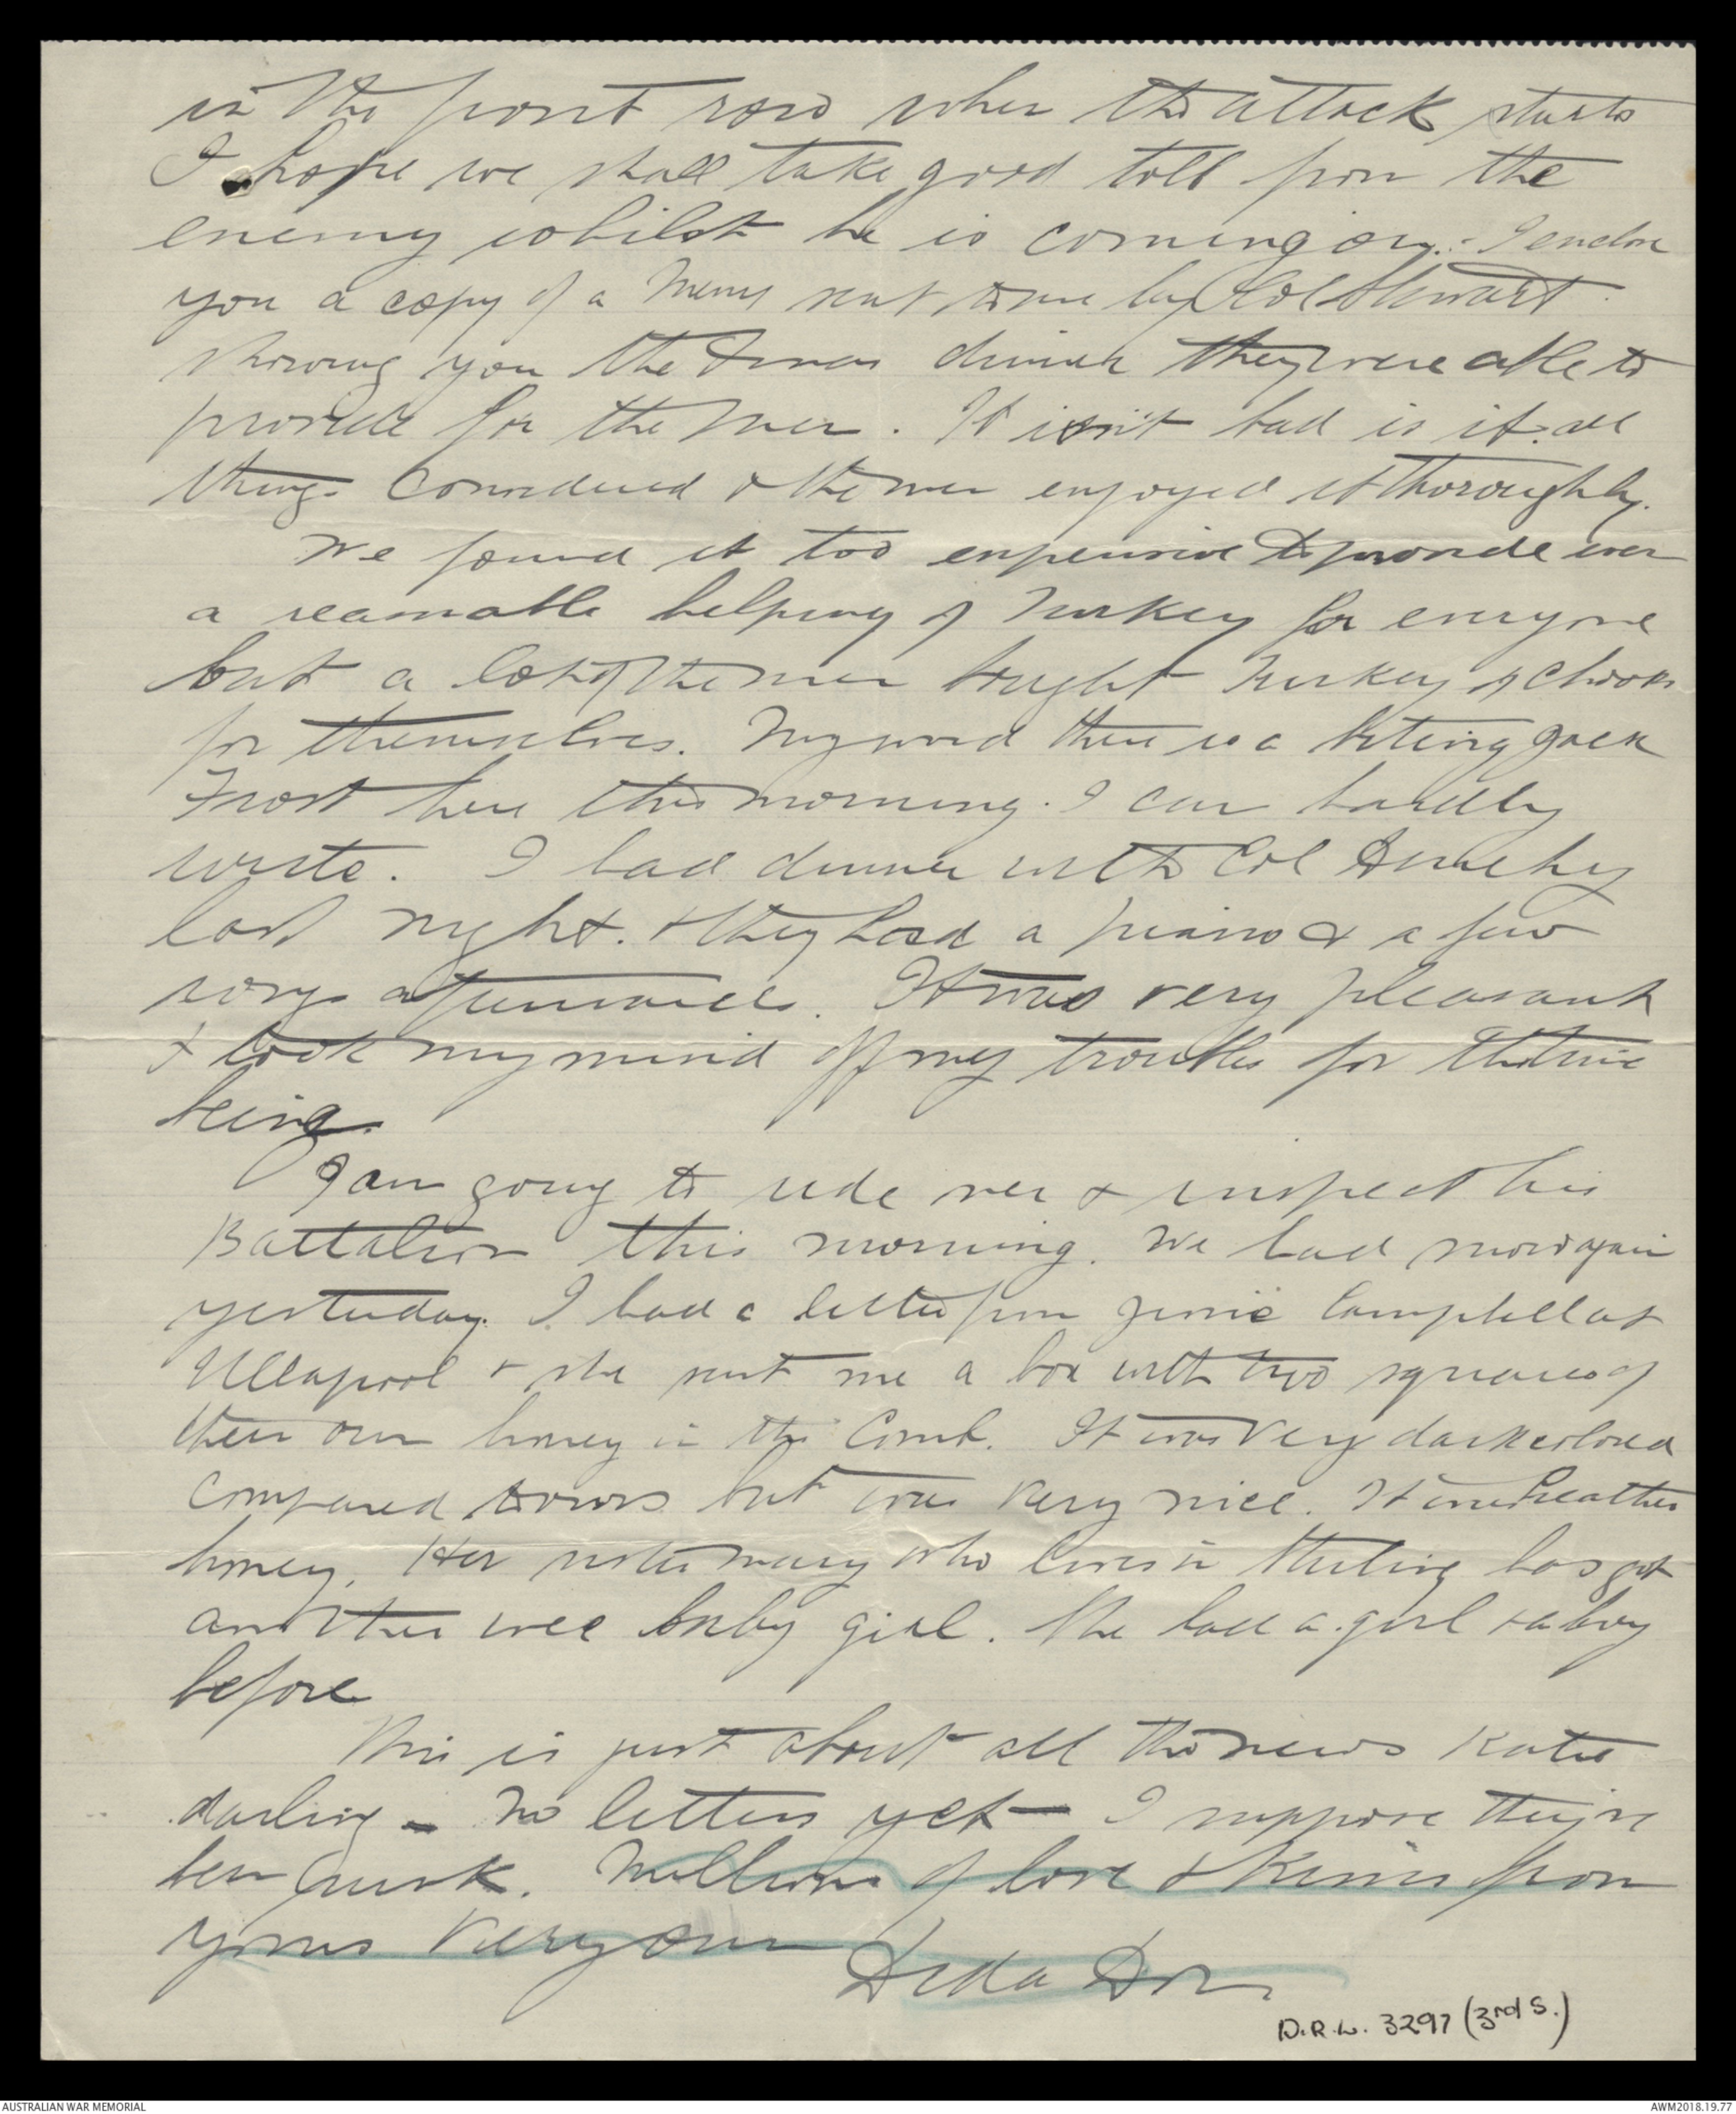 in the front row when the attack starts
I hope we shall take good toll from the
enemy whilst he is coming on. - I enclose
you a copy of a Menu sent to me by Col Stewart
showing you the Xmas dinner they were able to
provide for the men. It isn't bad is it all
things considered & the men enjoyed it thoroughly.
We found it too expensive to provide even
a reasonable helping of Turkey for everyone
but a lot of the men bought Turkey & chooks
for themselves. My word there is a biting Jack
Frost here this morning. I can hardly
write. I had dinner with Col
last night. & they had a piano & a few
songs afterwards. It was very pleasant
& took my mind off my troubles for the time
being.
I am going to ride over & inspect his
Battalion this morning. We had snow again
yesterday. I had a letter from Jessie Campbell at
Ullapool & she sent me a box with two squares of
their own honey in the Comb. It was very dark colored
compared to ours but was very nice. It was heather
honey. Her sister Mary who lives in Stirling has got
another wee baby girl. She had a girl & a boy
before
This is just about all the news Katie
darling - No letters yet - I suppose they've
been sunk. Millions of love & kisses from
yours very own
D.R.L. 3297 (3rd S.)
AUSTRALIAN WAR MEMORIAL
AWM2018.19.77